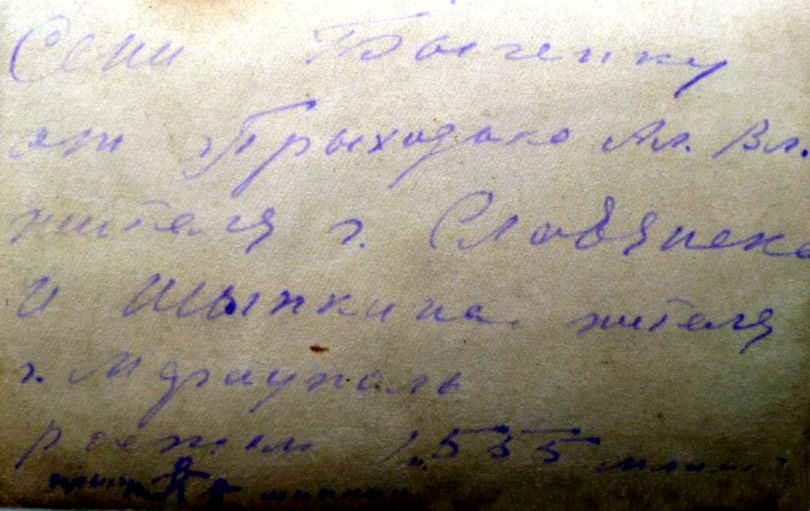 Сени Бысенку
от Прыходько Ал. Вл.
жителя г. Славянска
и Шыпкина жителя
г. Мариуполь
ростом 535